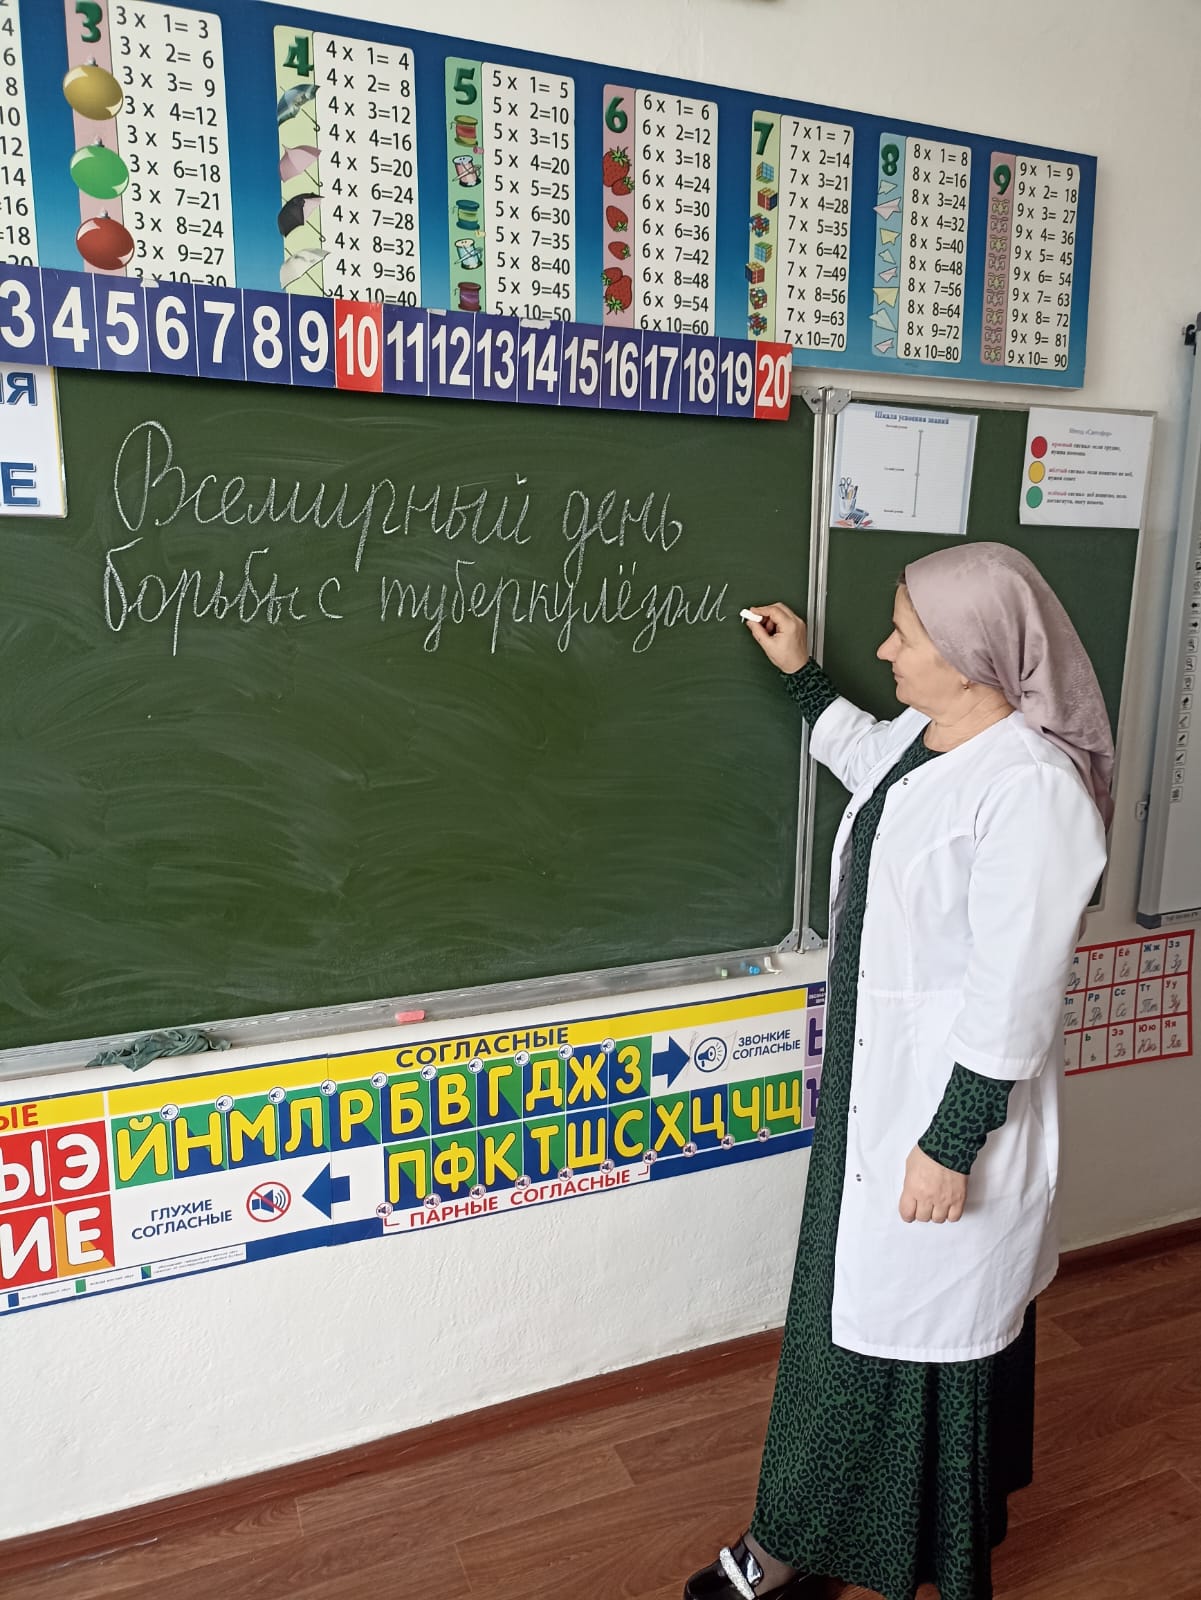 3
3 x 1= 3
3 x 2= 6
3 x 3= 9
3 x 4=12
3 x 5=15
3 x 6=18
3 x 7=21
3 x 8=24
3 x 9=27
3 x 10=30
4
4 x 1= 4
4 x 2= 8
4 x 3=12
4 x 4=16
4 x 5=20
4 x 6=24
4 x 7=28
4 x 8=32
4 x 9=36
4 x 10=40
5
5 x 1= 5
5 x 2=10
5 x 3=15
5 x 4=20
5 x 5=25
5 x 6=30
5 x 7=35
5 x 8=40
5 x 9=45
5 x 10=50
6
6 x 1= 6
6 x 2=12
6 x 3=18
6 x 4=24
6 x 5=30
6 x 6=36
6 x 7=42
6 x 8=48
6 x 9=54
6 x 10=60
7
7 x 1= 7
7 x 2=14
7 x 3=21
7 x 4=28
7 x 5=35
7 x 6=42
7 x 7=49
7 x 8=56
7 x 9=63
7 x 10=70
8
8 x 1= 8
8 x 2=16
8 x 3=24
8 x 4=32
8 x 5=40
8 x 6=48
8 x 7=56
8 x 8=64
8 x 9=72
8 x 10=80
9
9 x 1= 9
9 x 2= 18
9 x 3= 27
9 x 4= 36
9 x 5= 45
9 x 6= 54
9 x 7= 63
9 x 8= 72
9 x 9= 81
9 x 10= 90
3 4 5 6 7 8 9 10 11 12 13 14 15 16 17 18 19 20
Всемирный день
борьбы с туберкулёзом
Шкала усвоения знаний
Метод «Светофор»
СОГЛАСНЫЕ
ЗВОНКИЕ
СОГЛАСНЫЕ
Й Н М Л Р Б В Г Д Ж З
П Ф К Т Ш С Х Ц Ч Щ
ГЛУХИЕ
СОГЛАСНЫЕ
ПАРНЫЕ СОГЛАСНЫЕ
Ы Э
И Е
Ее Ёё Жж Зз
Рр Сс Тт Уу
Ээ Юю Яя